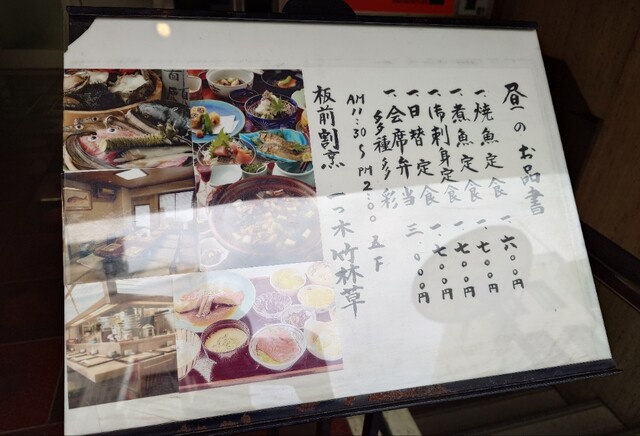 昼のお品書
一、焼魚定食 一、六〇〇円
一、煮魚定食 一、七〇〇円
一、御刺身定食 一、七〇〇円
一、日替定食 一、七〇〇円
一、会席弁当 三、〇〇〇円
多種多彩
AM11:30〜PM2:00 五F
板前割烹 一ツ木竹林草